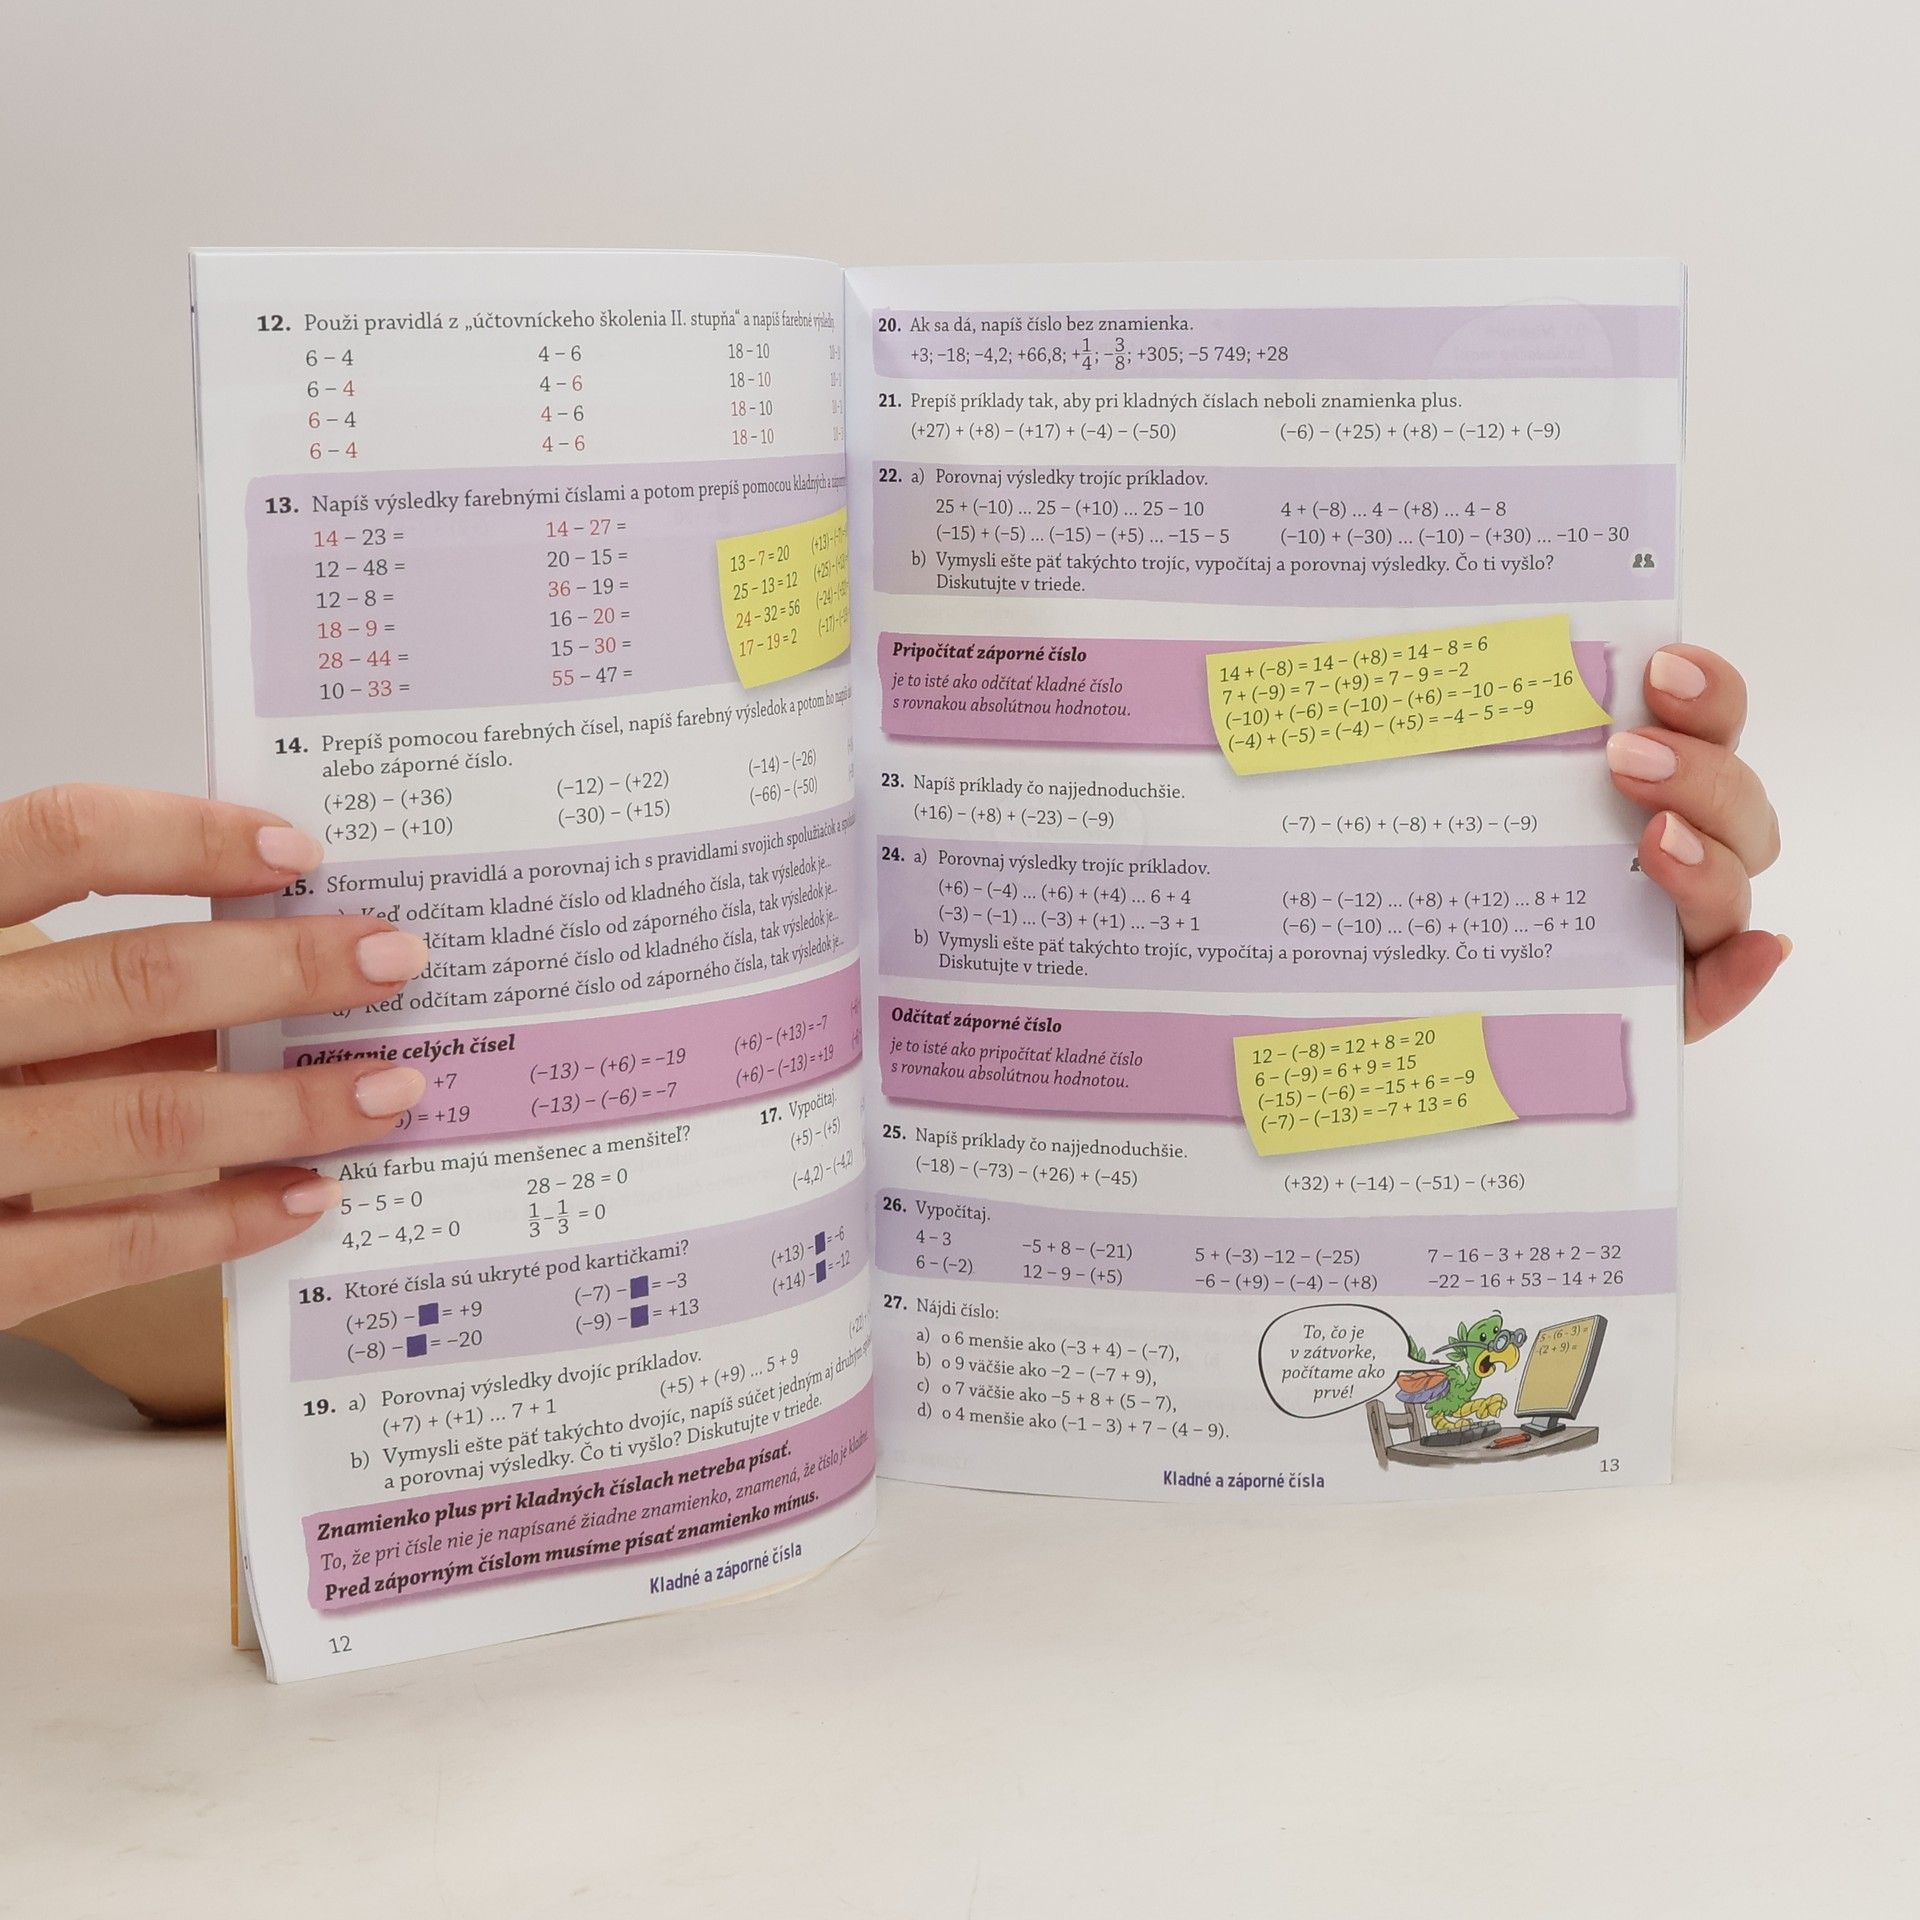 12. Použi pravidlá z „účtovníckeho školenia II. stupňa“ a napíš farebné výsledky
6 – 4 4 – 6 18 – 10
6 – 4 4 – 6 18 – 10
6 – 4 4 – 6 18 – 10
6 – 4 4 – 6 18 – 10
13. Napíš výsledky farebnými číslami a potom prepíš pomocou kladných a
14 – 23 = 14 – 27 =
12 – 48 = 20 – 15 =
12 – 8 = 36 – 19 =
18 – 9 = 16 – 20 =
28 – 44 = 15 – 30 =
10 – 33 = 55 – 47 =
13 – 7 = 20
25 – 13 = 12
24 – 32 = 56
17 – 19 = 2
14. Prepíš pomocou farebných čísel, napíš farebný výsledok a potom ho
alebo záporné číslo.
(+28) – (+36) (–12) – (+22) (–14) – (–26)
(+32) – (+10) (–30) – (+15) (–66) – (–50)
15. Sformuluj pravidlá a porovnaj ich s pravidlami svojich spolužiačok a
Keď odčítam kladné číslo od kladného čísla, tak výsledok je...
odčítam kladné číslo od záporného čísla, tak výsledok je...
odčítam záporné číslo od kladného čísla, tak výsledok je...
d) Keď odčítam záporné číslo od záporného čísla, tak výsledok je...
Odčítanie celých čísel
+7 (–13) – (+6) = –19 (+6) – (+13) = –7
) = +19 (–13) – (–6) = –7 (+6) – (–13) = +19
Akú farbu majú menšenec a menšiteľ?
5 – 5 = 0 28 – 28 = 0
4,2 – 4,2 = 0 1/3 – 1/3 = 0
17. Vypočítaj.
(+5) – (+5)
(–4,2) – (–4,2)
18. Ktoré čísla sú ukryté pod kartičkami?
(+25) – ■ = +9 (–7) – ■ = –3 (+13) – ■ = –6
(–8) – ■ = –20 (–9) – ■ = +13 (+14) – ■ = –12
19. a) Porovnaj výsledky dvojíc príkladov.
(+7) + (+1) ... 7 + 1 (+5) + (+9) ... 5 + 9
b) Vymysli ešte päť takýchto dvojíc, napíš súčet jedným aj druhým
a porovnaj výsledky. Čo ti vyšlo? Diskutujte v triede.
Znamienko plus pri kladných číslach netreba písať.
To, že pri čísle nie je napísané žiadne znamienko, znamená, že číslo je kladné.
Pred záporným číslom musíme písať znamienko mínus.
Kladné a záporné čísla
12
20. Ak sa dá, napíš číslo bez znamienka.
+3; –18; –4,2; +66,8; +1/4; –3/8; +305; –5 749; +28
21. Prepíš príklady tak, aby pri kladných číslach neboli znamienka plus.
(+27) + (+8) – (+17) + (–4) – (–50) (–6) – (+25) + (+8) – (–12) + (–9)
22. a) Porovnaj výsledky trojíc príkladov.
25 + (–10) ... 25 – (+10) ... 25 – 10 4 + (–8) ... 4 – (+8) ... 4 – 8
(–15) + (–5) ... (–15) – (+5) ... –15 – 5 (–10) + (–30) ... (–10) – (+30) ... –10 – 30
b) Vymysli ešte päť takýchto trojíc, vypočítaj a porovnaj výsledky. Čo ti vyšlo?
Diskutujte v triede.
Pripočítať záporné číslo
je to isté ako odčítať kladné číslo
s rovnakou absolútnou hodnotou.
14 + (–8) = 14 – (+8) = 14 – 8 = 6
7 + (–9) = 7 – (+9) = 7 – 9 = –2
(–10) + (–6) = (–10) – (+6) = –10 – 6 = –16
(–4) + (–5) = (–4) – (+5) = –4 – 5 = –9
23. Napíš príklady čo najjednoduchšie.
(+16) – (+8) + (–23) – (–9) (–7) – (+6) + (–8) + (+3) – (–9)
24. a) Porovnaj výsledky trojíc príkladov.
(+6) – (–4) ... (+6) + (+4) ... 6 + 4 (+8) – (–12) ... (+8) + (+12) ... 8 + 12
(–3) – (–1) ... (–3) + (+1) ... –3 + 1 (–6) – (–10) ... (–6) + (+10) ... –6 + 10
b) Vymysli ešte päť takýchto trojíc, vypočítaj a porovnaj výsledky. Čo ti vyšlo?
Diskutujte v triede.
Odčítať záporné číslo
je to isté ako pripočítať kladné číslo
s rovnakou absolútnou hodnotou.
12 – (–8) = 12 + 8 = 20
6 – (–9) = 6 + 9 = 15
(–15) – (–6) = –15 + 6 = –9
(–7) – (–13) = –7 + 13 = 6
25. Napíš príklady čo najjednoduchšie.
(–18) – (–73) – (+26) + (–45) (+32) + (–14) – (–51) – (+36)
26. Vypočítaj.
4 – 3 –5 + 8 – (–21) 5 + (–3) –12 – (–25) 7 – 16 – 3 + 28 + 2 – 32
6 – (–2) 12 – 9 – (+5) –6 – (+9) – (–4) – (+8) –22 – 16 + 53 – 14 + 26
27. Nájdi číslo:
a) o 6 menšie ako (–3 + 4) – (–7),
b) o 9 väčšie ako –2 – (–7 + 9),
c) o 7 väčšie ako –5 + 8 + (5 – 7),
d) o 4 menšie ako (–1 – 3) + 7 – (4 – 9).
To, čo je
v zátvorke,
počítame ako
prvé!
5 – (6 – 3) =
–(2 + 9) =
Kladné a záporné čísla
13